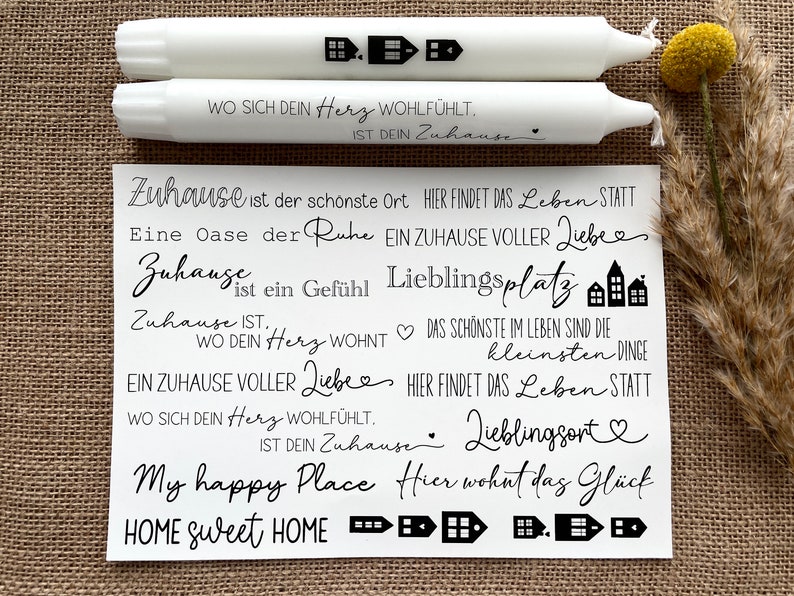 WO SICH DEIN Herz WOHLFÜHLT,
IST DEIN Zuhause
Zuhause ist der schönste Ort
HIER FINDET DAS Leben STATT
Eine Oase der Ruhe
EIN ZUHAUSE VOLLER Liebe
Zuhause
ist ein Gefühl
Lieblingsplatz
Zuhause IST,
WO DEIN Herz WOHNT
DAS SCHÖNSTE IM LEBEN SIND DIE
kleinsten DINGE
EIN ZUHAUSE VOLLER Liebe
HIER FINDET DAS Leben STATT
WO SICH DEIN Herz WOHLFÜHLT,
IST DEIN Zuhause
Lieblingsort
My happy Place
Hier wohnt das Glück
HOME sweet HOME